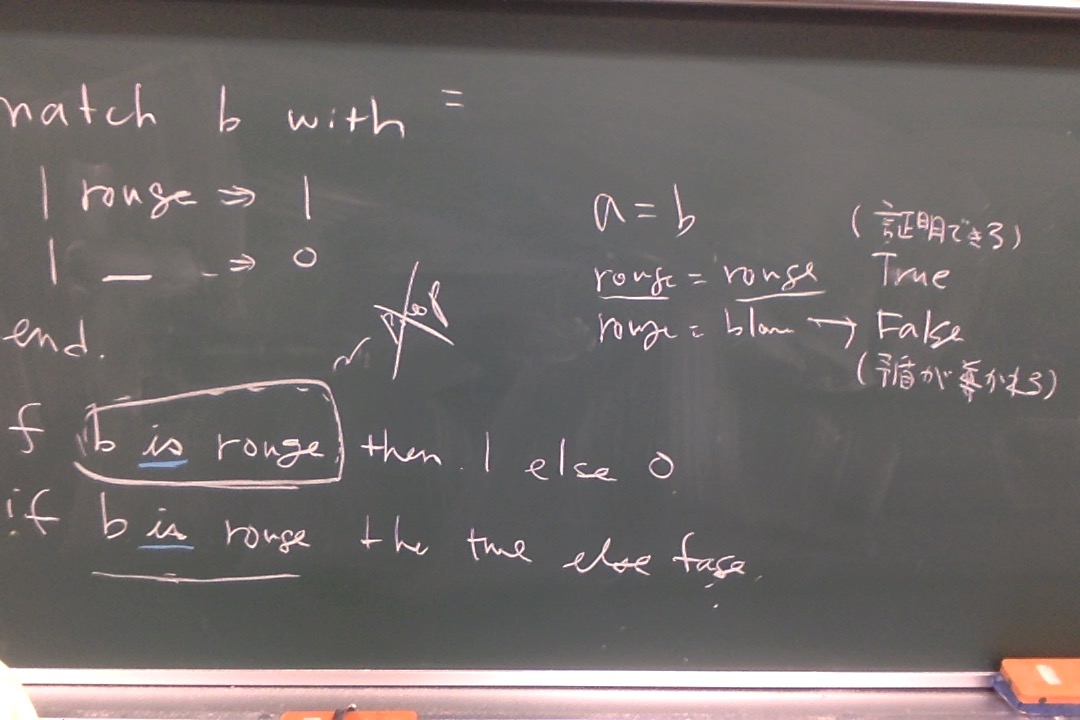 match b with =
| rouge => 1
| _ => 0
end.
if b is rouge then 1 else 0
if b is rouge the true else fase.
a = b
(証明できる)
rouge = rouge True
rouge = blan → False
(矛盾が導かれる)